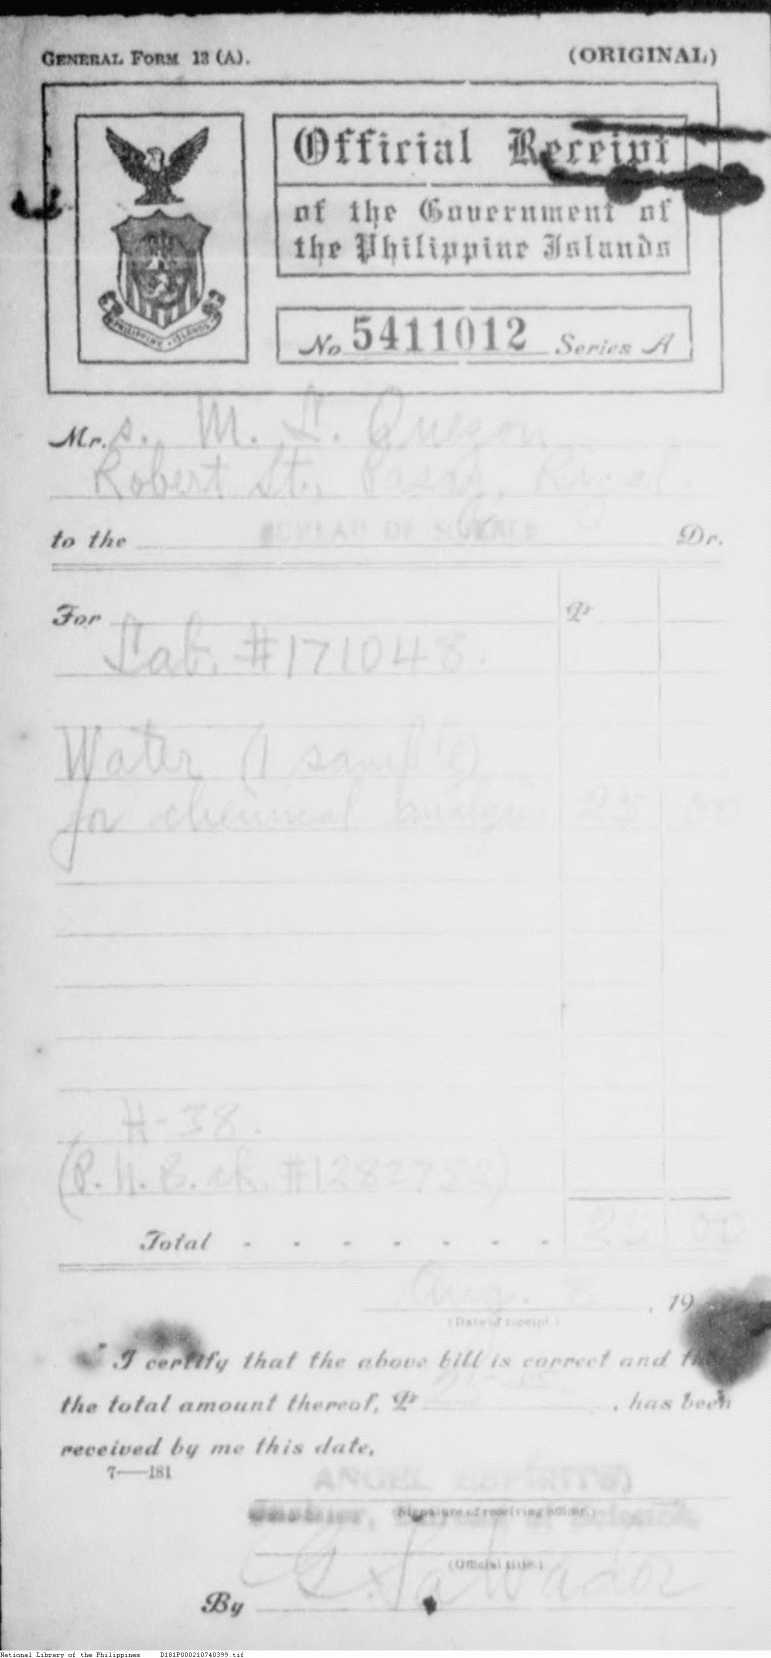 GENERAL FORM 13 (A).
(ORIGINAL)
Official Receipt
of the Government of
the Philippine Islands
PHILIPPINE ISLANDS
No 5411012 Series A
Mr. s. M. L. Quezon
Robert St., Pasay, Rizal.
to the BUREAU OF SCIENCE Dr.
For ₱
Lab. #171048.
Water (1 sample)
for chemical analysis 25 00
H-38.
(P. N. B. ch. #1282752)
Total - - - - - - - 25 00
Aug. 8, 19
(Date of receipt.)
I certify that the above bill is correct and that
the total amount thereof, ₱ 25.00, has been
received by me this date.
7—181
ANGEL ESPIRITU
(Signature of receiving officer.)
Cashier, Bureau of Science.
(Official title.)
By Salvador
National Library of the Philippines D181P000210740399.tif